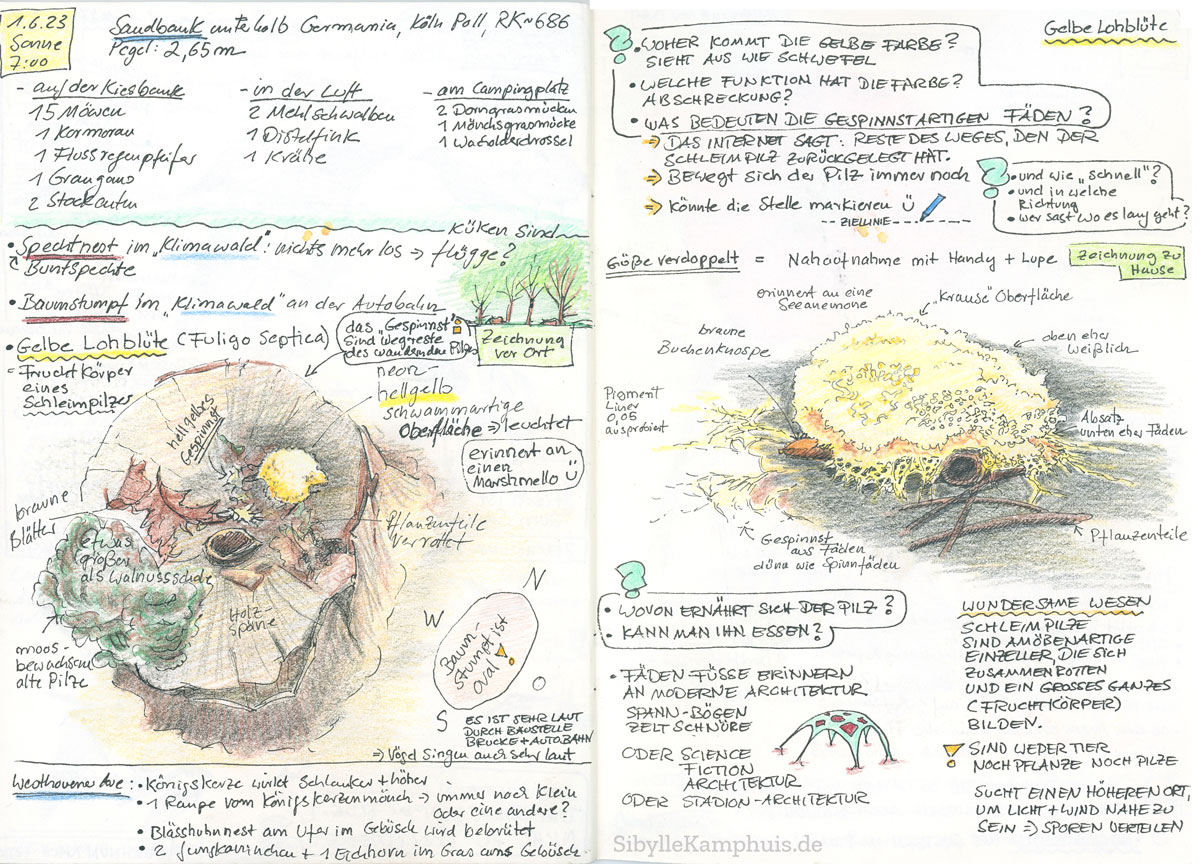 1.6.23
Sonne
7:00
Sandbank unterhalb Germania, Köln Poll, RK~686
Pegel: 2,65m
- auf der Kiesbank
15 Möwen
1 Kormoran
1 Flussregenpfeifer
1 Graugans
2 Stockenten
- in der Luft
2 Mehlschwalben
1 Distelfink
1 Krähe
- am Campingplatz
2 Dorngrasmücken
1 Mönchsgrasmücke
1 Wacholderdrossel
Küken sind
• Spechtnest im "Klimawald": nichts mehr los => flügge?
Buntspechte
• Baumstumpf im "Klimawald" an der Autobahn
• Gelbe Lohblüte (Fuligo Septica)
= Fruchtkörper
eines
Schleimpilzes
das "Gespinnst"
sind Wegreste
des wandernden Pilzes
Zeichnung
vor Ort
neon-
hellgelb
schwammartige
Oberfläche => leuchtet
erinnert an
einen
Marshmello
hellgelbes
Gespinnst
braune
Blätter
etwas
größer
als Walnussschale
Pflanzenteile
verrottet
Holz-
späne
moos-
bewachsene
alte Pilze
N
W
O
S
Baum-
stumpf ist
oval
ES IST SEHR LAUT
DURCH BAUSTELLE
BRÜCKE + AUTOBAHN
=> Vögel singen auch sehr laut
Westhovener Aue: • Königskerze wirkt schlanker + höher
• 1 Raupe vom Königskerzenmönch => immer noch klein
oder eine andere?
• Blässhuhnnest am Ufer im Gebüsch wird bebrütet
• 2 Jungkaninchen + 1 Eichhorn im Gras ums Gebüsch
Gelbe Lohblüte
?
• WOHER KOMMT DIE GELBE FARBE?
SIEHT AUS WIE SCHWEFEL
• WELCHE FUNKTION HAT DIE FARBE?
ABSCHRECKUNG?
• WAS BEDEUTEN DIE GESPINNSTARTIGEN FÄDEN?
=> DAS INTERNET SAGT: RESTE DES WEGES, DEN DER
SCHLEIMPILZ ZURÜCKGELEGT HAT.
=> BEWEGT SICH DER PILZ IMMER NOCH
=> KÖNNTE DIE STELLE MARKIEREN
ZIELLINIE
?
• und wie "schnell"?
• und in welche
Richtung
• wer sagt wo es lang geht?
Größe verdoppelt = Nahaufnahme mit Handy + Lupe
Zeichnung zu
Hause
erinnert an eine
Seeanemone
"Krause" Oberfläche
braune
Buchenknospe
oben eher
Weißlich
Pigment
Liner
0,05
ausprobiert
Absatz
unten eher Fäden
Gespinnst
aus Fäden
dünn wie Spinnfäden
Pflanzenteile
?
• WOVON ERNÄHRT SICH DER PILZ?
• KANN MAN IHN ESSEN?
• FÄDEN FÜSSE ERINNERN
AN MODERNE ARCHITEKTUR
SPANN-BÖGEN
ZELTSCHNÜRE
ODER SCIENCE
FICTION
ARCHITEKTUR
ODER STADION-ARCHITEKTUR
WUNDERSAME WESEN
SCHLEIMPILZE
SIND AMÖBENARTIGE
EINZELLER, DIE SICH
ZUSAMMENROTTEN
UND EIN GROSSES GANZES
(FRUCHTKÖRPER)
BILDEN.
! SIND WEDER TIER
NOCH PFLANZE NOCH PILZ
SUCHT EINEN HÖHEREN ORT,
UM LICHT + WIND NAHE ZU
SEIN => SPOREN VERTEILEN
SibylleKamphuis.de